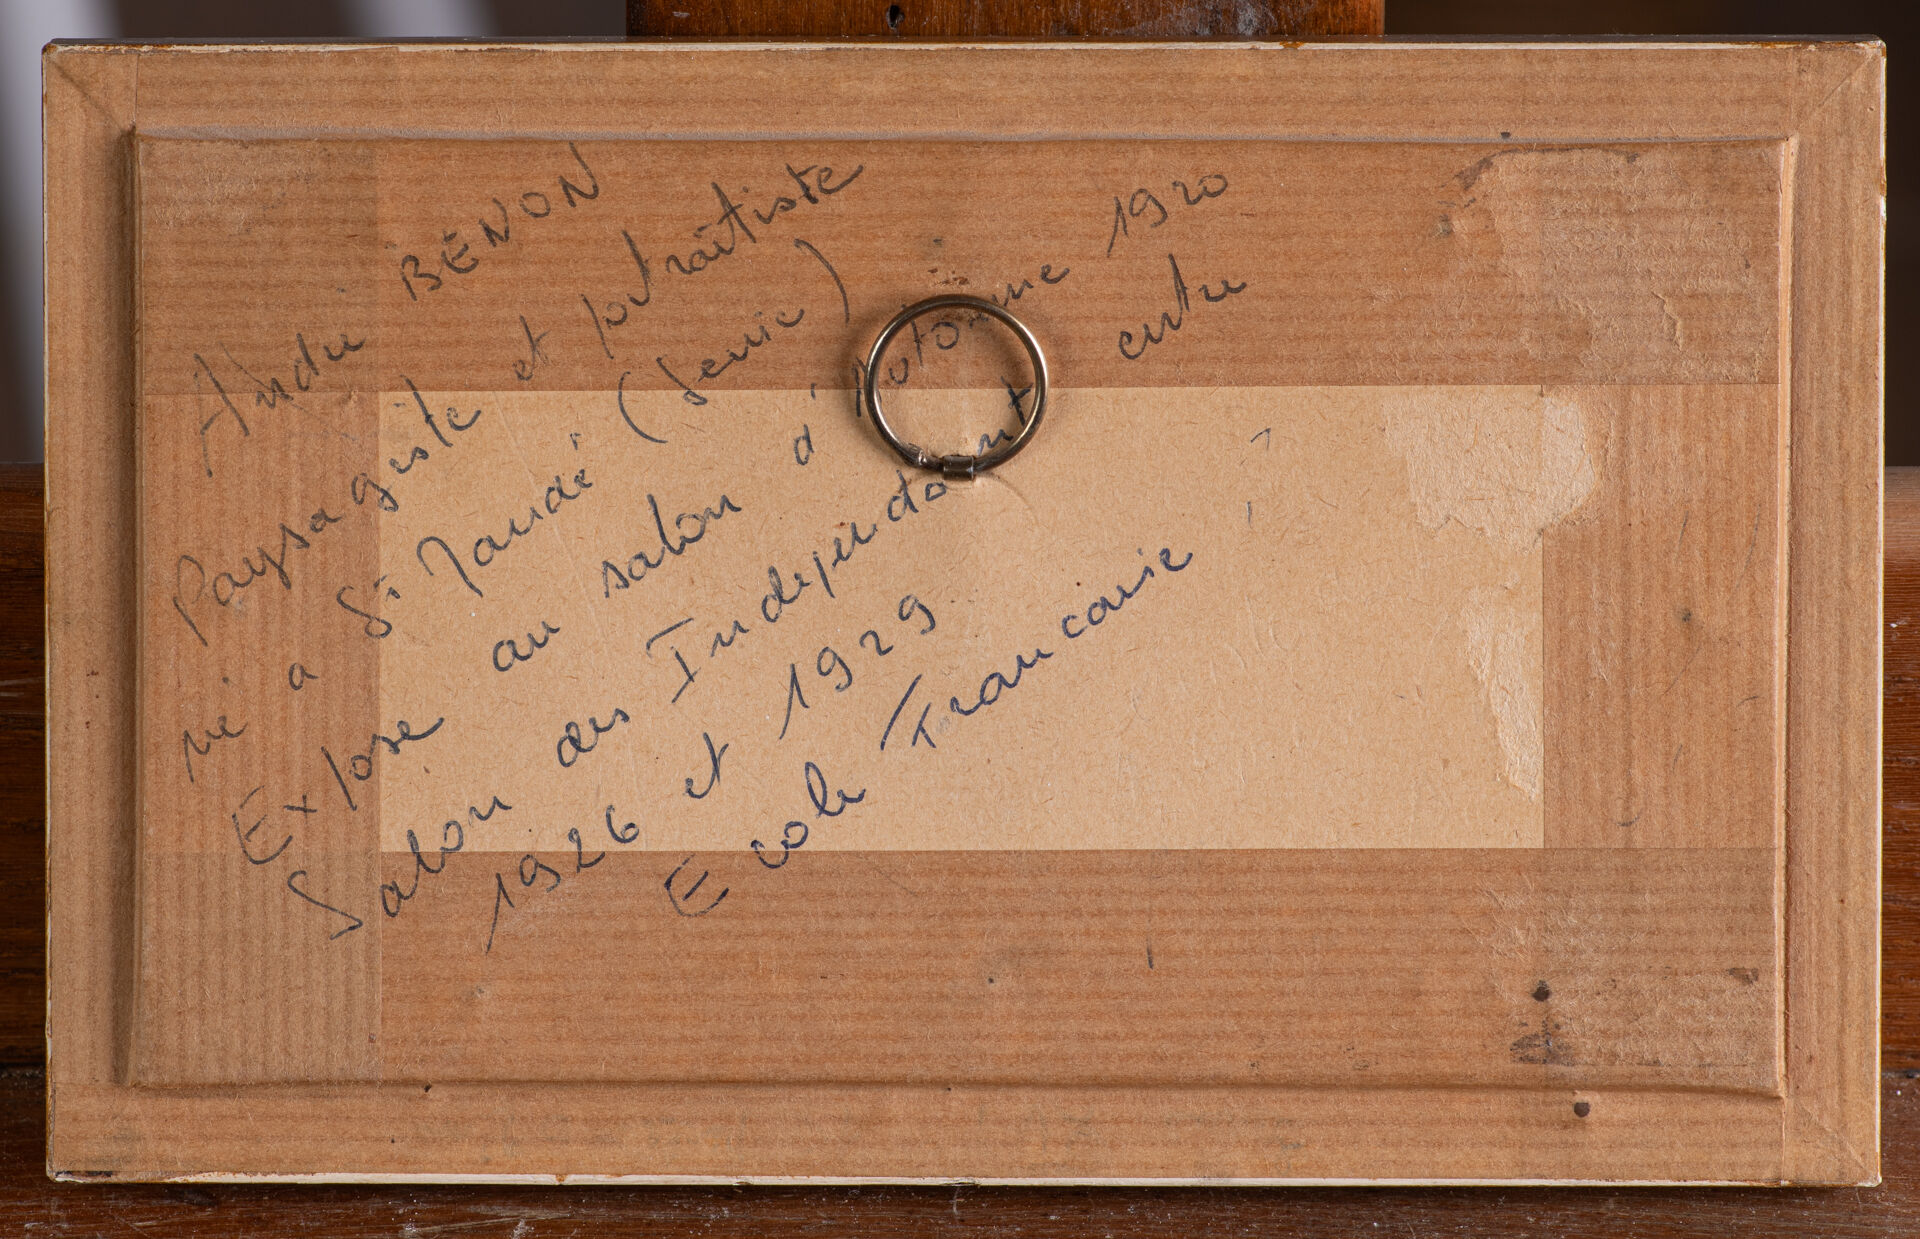 André BÉNON
Paysagiste et portraitiste
né a St Mandé (Seine)
Expose au salon d'Automne 1920
Salon des Independant entre
1926 et 1929
Ecole Francaise